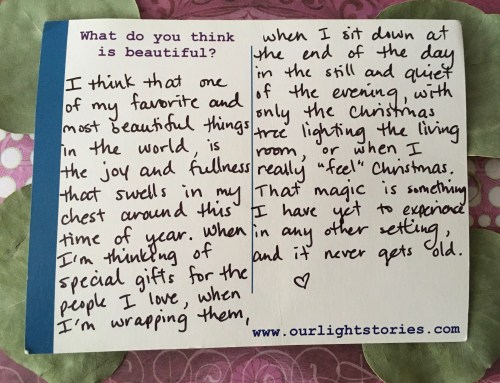 What do you think
is beautiful?
I think that one
of my favorite and
most beautiful things
in the world, is
the joy and fullness
that swells in my
chest around this
time of year. When
I'm thinking of
special gifts for the
people I love, when
I'm wrapping them,
when I sit down at
the end of the day
in the still and quiet
of the evening, with
only the Christmas
tree lighting the living
room, or when I
really "feel" Christmas.
That magic is something
I have yet to experience
in any other setting,
and it never gets old.
♡
www.ourlightstories.com